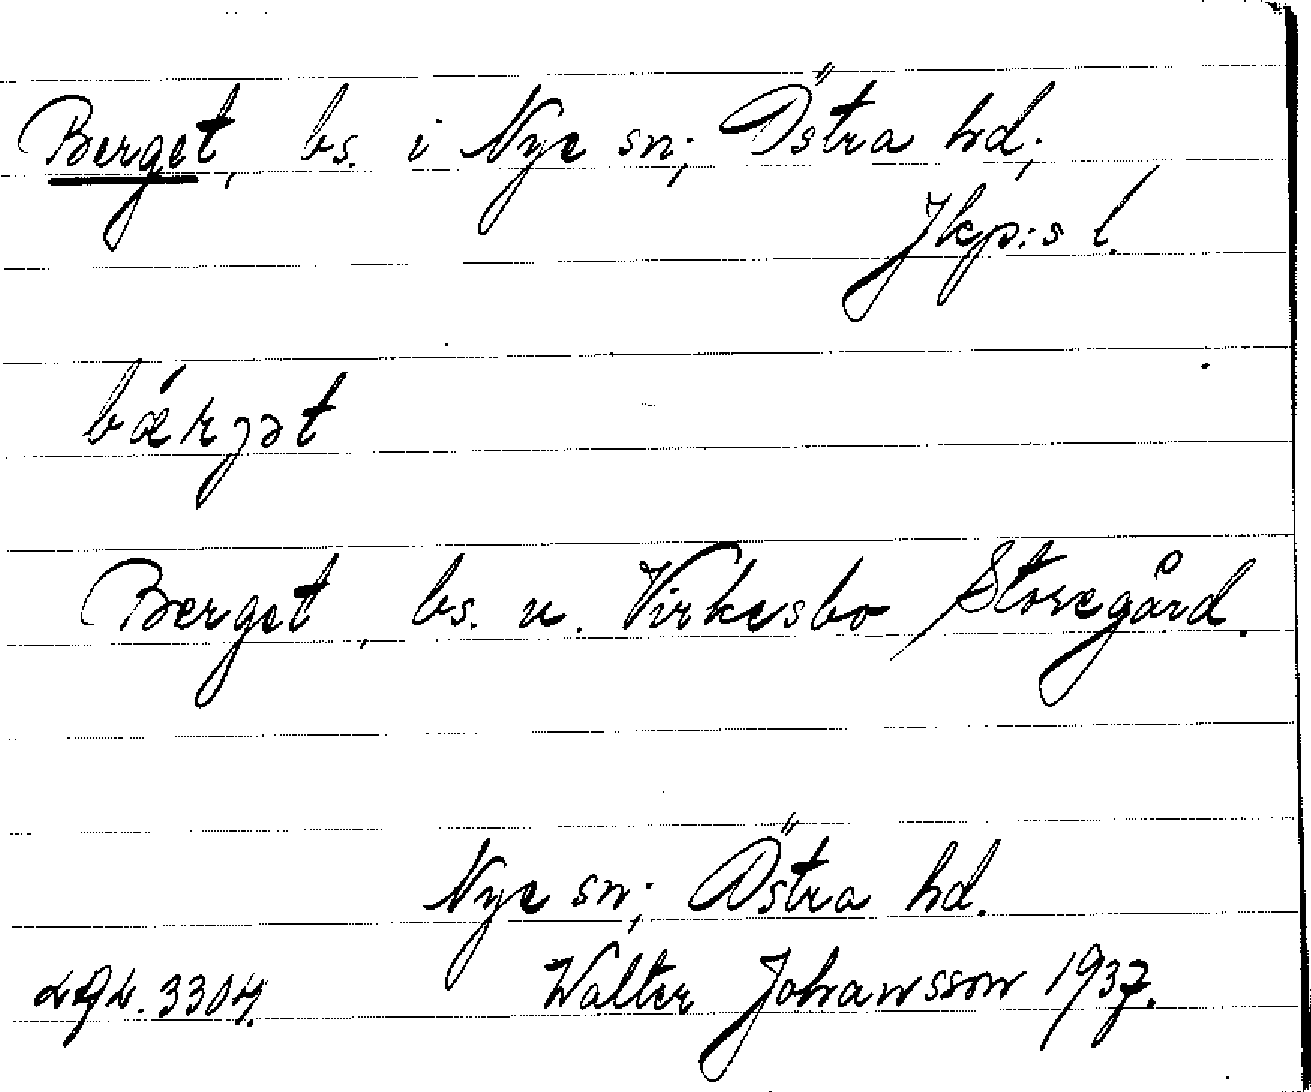 Berget, bs. i Nye sn; Östra hd;
Jkp:s l.
bǽrjət
Berget, bs. u. Virkesbo Storegård.
Nye sn; Östra hd.
3304. Walter Johansson 1937.